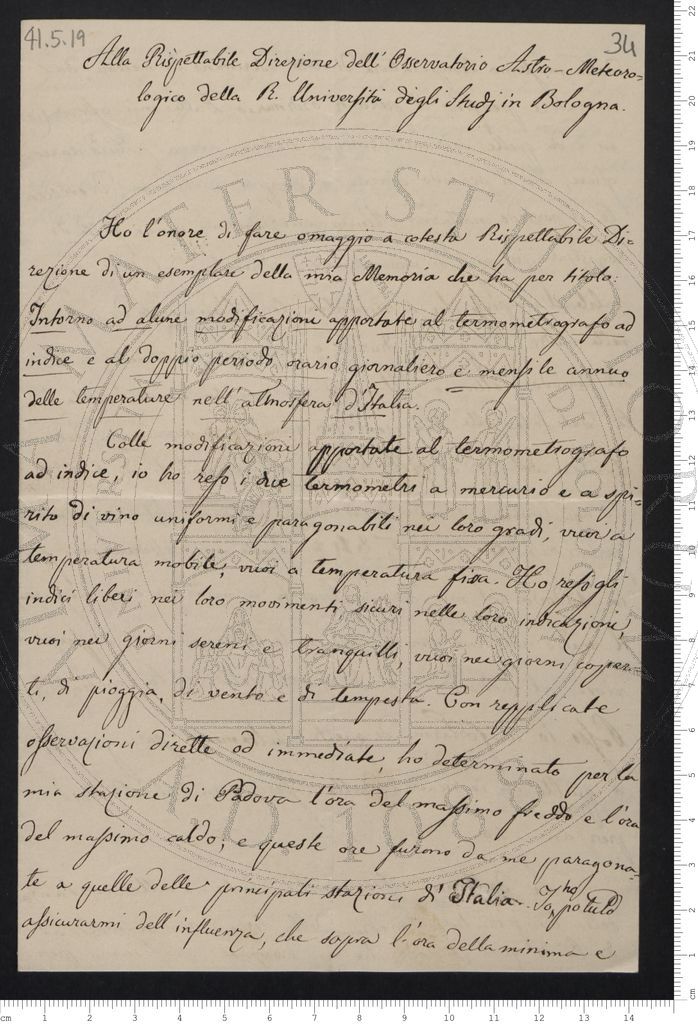 41.5.19
34
Alla Rispettabile Direzione dell'Osservatorio Astro-Meteoro=
logico della R. Università degli Studj in Bologna.
Ho l'onore di fare omaggio a cotesta Rispettabile Di=
rezione di un esemplare della mia Memoria che ha per titolo:
Intorno ad alcune modificazioni apportate al termometrografo ad
indice e al doppio periodo orario giornaliero e mensile annuo
delle temperature nell'atmosfera d'Italia.
Colle modificazioni apportate al termometrografo
ad indice, io ho reso i due termometri a mercurio e a spi=
rito di vino uniformi e paragonabili nei loro gradi, vuoi a
temperatura mobile, vuoi a temperatura fissa. Ho reso gli
indici liberi nei loro movimenti sicuri nelle loro indicazioni,
vuoi nei giorni sereni e tranquilli, vuoi nei giorni coper=
ti, di pioggia, di vento e di tempesta. Con replicate
osservazioni dirette ed immediate, ho determinato per la
mia stazione di Padova l'ora del massimo freddo e l'ora
del massimo caldo; e queste ore furono da me paragona=
te a quelle delle principali stazioni d'Italia. Io ho potuto
assicurarmi dell'influenza, che sopra l'ora della minima e